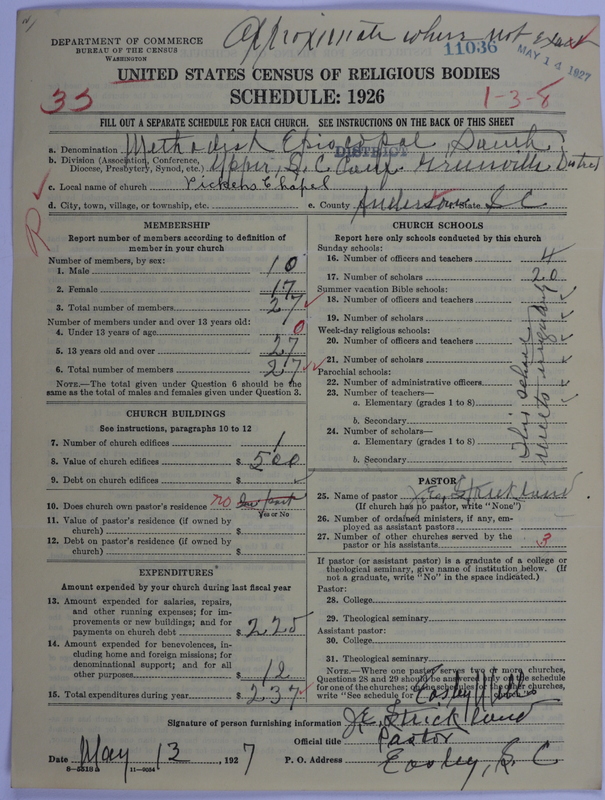 Approximate where not exact
DEPARTMENT OF COMMERCE
BUREAU OF THE CENSUS
WASHINGTON
11036
MAY 14 1927
UNITED STATES CENSUS OF RELIGIOUS BODIES
SCHEDULE: 1926
33
1-3-8
FILL OUT A SEPARATE SCHEDULE FOR EACH CHURCH. SEE INSTRUCTIONS ON THE BACK OF THIS SHEET
a. Denomination Methodist Episcopal, South
DISTRICT
b. Division (Association, Conference, Diocese, Presbytery, Synod, etc.) Upper, S. C. Conf. Greenville District
c. Local name of church Pickens Chapel
d. City, town, village, or township, etc. e. County Anderson State S C
R
MEMBERSHIP
Report number of members according to definition of member in your church
Number of members, by sex:
1. Male 10
2. Female 17
3. Total number of members 27
Number of members under and over 13 years old:
4. Under 13 years of age 0
5. 13 years old and over 27
6. Total number of members 27
NOTE.—The total given under Question 6 should be the same as the total of males and females given under Question 3.
CHURCH BUILDINGS
See instructions, paragraphs 10 to 12
7. Number of church edifices 1
8. Value of church edifices $ 500
9. Debt on church edifices $
10. Does church own pastor's residence no
Yes or No
11. Value of pastor's residence (if owned by church) $
12. Debt on pastor's residence (if owned by church) $
EXPENDITURES
Amount expended by your church during last fiscal year
13. Amount expended for salaries, repairs, and other running expenses; for improvements or new buildings; and for payments on church debt $ 225
14. Amount expended for benevolences, including home and foreign missions; for denominational support; and for all other purposes $ 12
15. Total expenditures during year $ 237
CHURCH SCHOOLS
Report here only schools conducted by this church
Sunday schools:
16. Number of officers and teachers 4
17. Number of scholars 20
Summer vacation Bible schools:
18. Number of officers and teachers
19. Number of scholars
Week-day religious schools:
20. Number of officers and teachers
21. Number of scholars
Parochial schools:
22. Number of administrative officers
23. Number of teachers—
a. Elementary (grades 1 to 8)
b. Secondary
24. Number of scholars—
a. Elementary (grades 1 to 8)
b. Secondary
This school
PASTOR
25. Name of pastor J. E. Strickland
(If church has no pastor, write "None")
26. Number of ordained ministers, if any, employed as assistant pastors
27. Number of other churches served by the pastor or his assistants 3
If pastor (or assistant pastor) is a graduate of a college or theological seminary, give name of institution below. (If not a graduate, write "No" in the space indicated.)
Pastor:
28. College
29. Theological seminary
Assistant pastor:
30. College
31. Theological seminary
NOTE.—Where one pastor serves two or more churches, Questions 28 and 29 should be answered only on the schedule for one of the churches; on the schedules for the other churches, write "See schedule for Easley Mills
Signature of person furnishing information J. E. Strickland
Official title Pastor
Date May 13, 1927 P. O. Address Easley, S. C
8—5318 11—9054